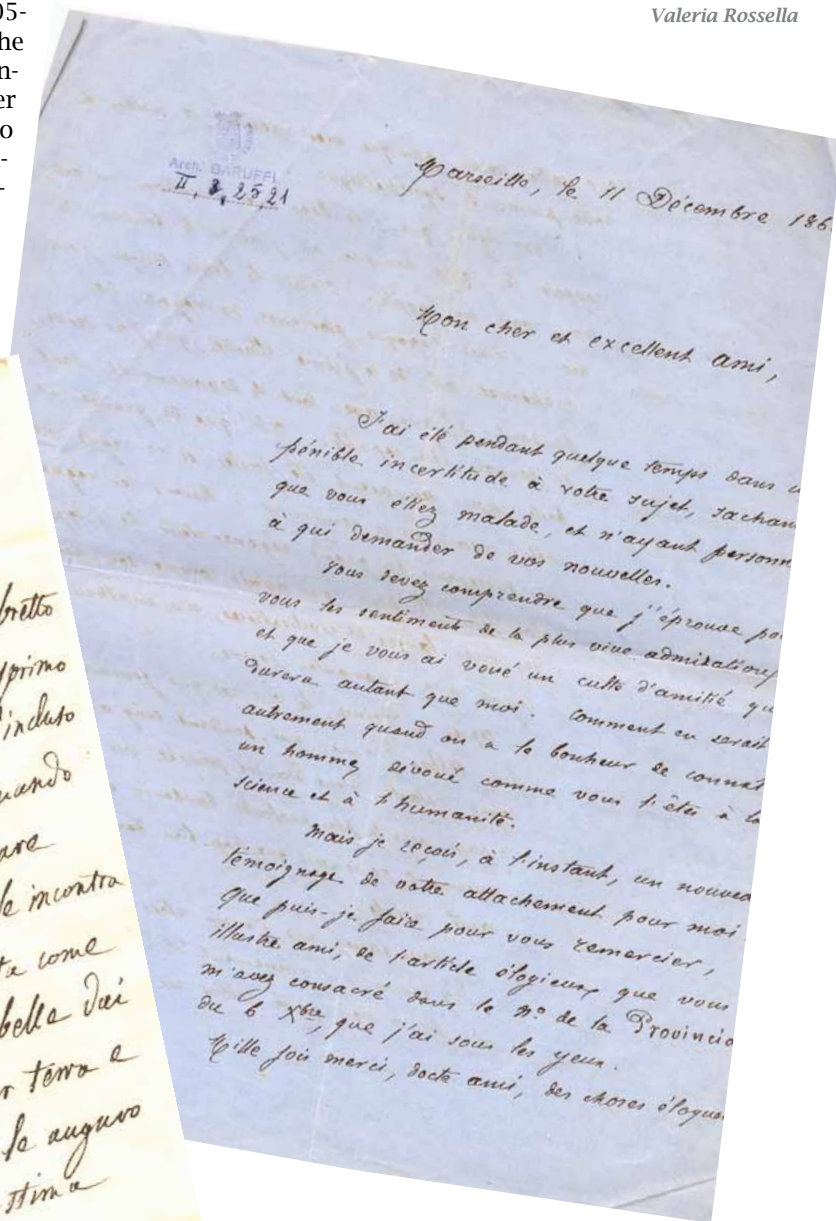 05-
he
n-
er
o
-
-
Valeria Rossella
Arch. BARUFFI
II, 2521
Marseille, le 11 Décembre 186
Mon cher et excellent ami,
J'ai été pendant quelque temps dans u
pénible incertitude à votre sujet, sachan
que vous étiez malade, et n'ayant personn
à qui demander de vos nouvelles.
Vous devez comprendre que j'éprouve po
vous les sentiments de la plus vive admiration,
et que je vous ai voué un culte d'amitié qu
durera autant que moi. Comment en serait
autrement quand on a le bonheur de connaî
un homme, dévoué comme vous l'êtes à la
science et à l'humanité.
Mais je reçois, à l'instant, un nouvea
témoignage de votre attachement pour moi.
Que puis-je faire pour vous remercier,
illustre ami, de l'article élogieux que vous
m'avez consacré dans le nº de la Provincia
du 6 Xbre, que j'ai sous les yeux.
Mille fois merci, docte ami, des choses éloque
bretto
primo
incluso
uando
are
le incontra
ta come
belle dai
r terra e
le auguro
stima